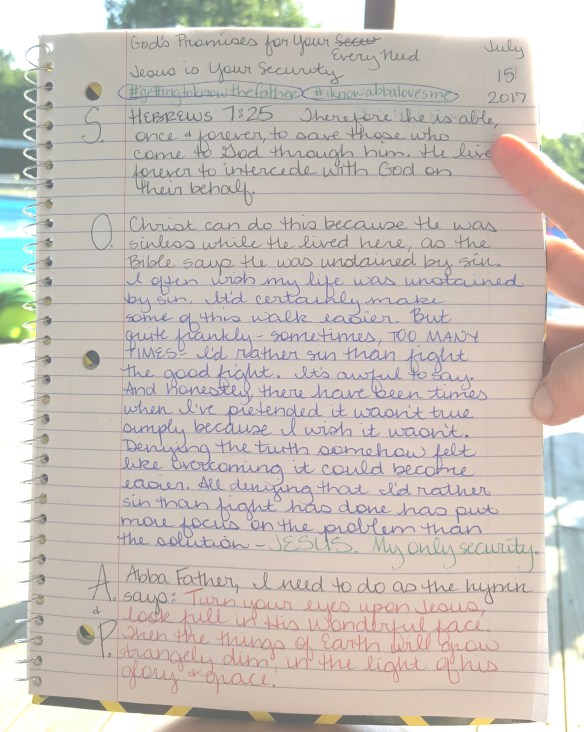 God's Promises for Your Secu
Every Need
July
Jesus is Your Security
15
#gettingtoknowthefather #iknowabbalovesme
2017
S. HEBREWS 7:25 Therefore He is able,
once & forever, to save those who
come to God through him. He live
forever to intercede with God on
their behalf.
O. Christ can do this because He was
sinless while He lived here, as the
Bible says He was unstained by sin.
I often wish my life was unstained
by sin. It'd certainly make
some of this walk easier. But
quite frankly - sometimes, TOO MANY
TIMES - I'd rather sin than fight
the good fight. It's awful to say.
And honestly, there have been times
when I've pretended it wasn't true
simply because I wish it wasn't.
Denying the truth somehow felt
like overcoming it could become
easier. All denying that I'd rather
sin than fight has done has put
more focus on the problem than
the solution - JESUS. My only security.
A. Abba Father, I need to do as the hymn
& says: Turn your eyes upon Jesus,
look full in His wonderful face.
P. Then the things of Earth will grow
strangely dim in the light of his
glory & grace.